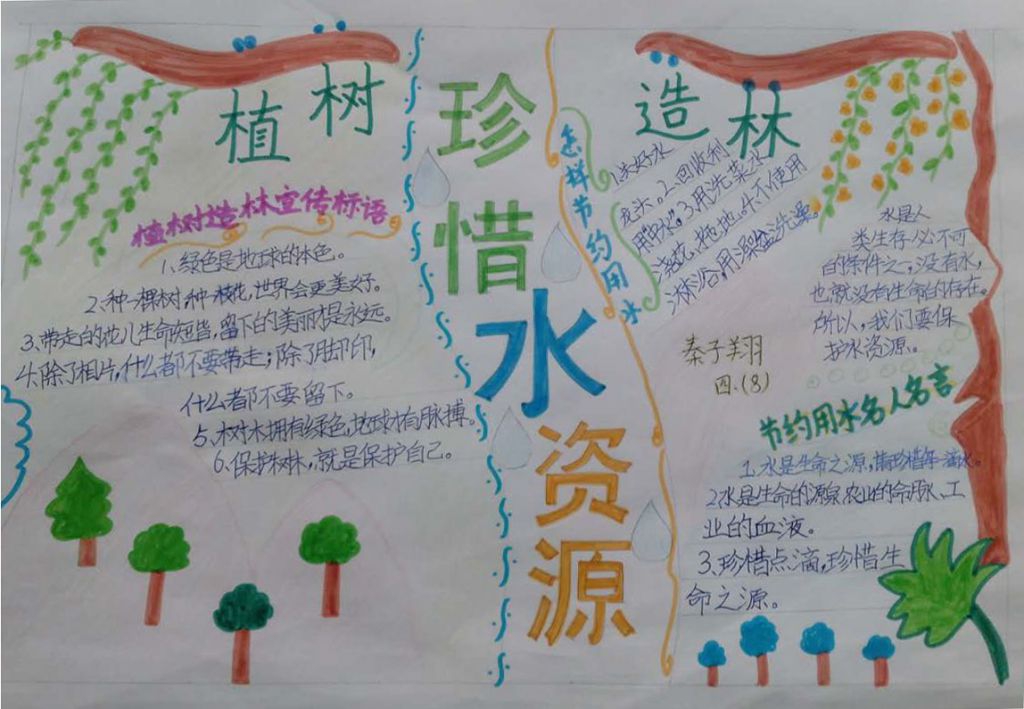 植树
珍惜水资源
造林
植树造林宣传标语
1、绿色是地球的本色。
2、种一棵树,种一枝花,世界会更美好。
3、带走的花儿生命短暂,留下的美丽才是永远。
4、除了相片,什么都不要带走;除了脚印,
什么都不要留下。
5、树木拥有绿色,地球才有脉搏。
6、保护树林,就是保护自己。
怎样节约用水
1.关好水
龙头。2.回收利
用"中水"。3.用洗菜水
浇花、拖地。4.不使用
淋浴,用澡盆洗澡。
水是人
类生存必不可
的条件之一,没有水,
也就没有生命的存在。
所以,我们要保
护水资源。
秦子翔
四.(8)
节约用水名人名言
1.水是生命之源,请珍惜每一滴水。
2.水是生命的源泉、农业的命脉、工
业的血液。
3、珍惜点滴,珍惜生
命之源。